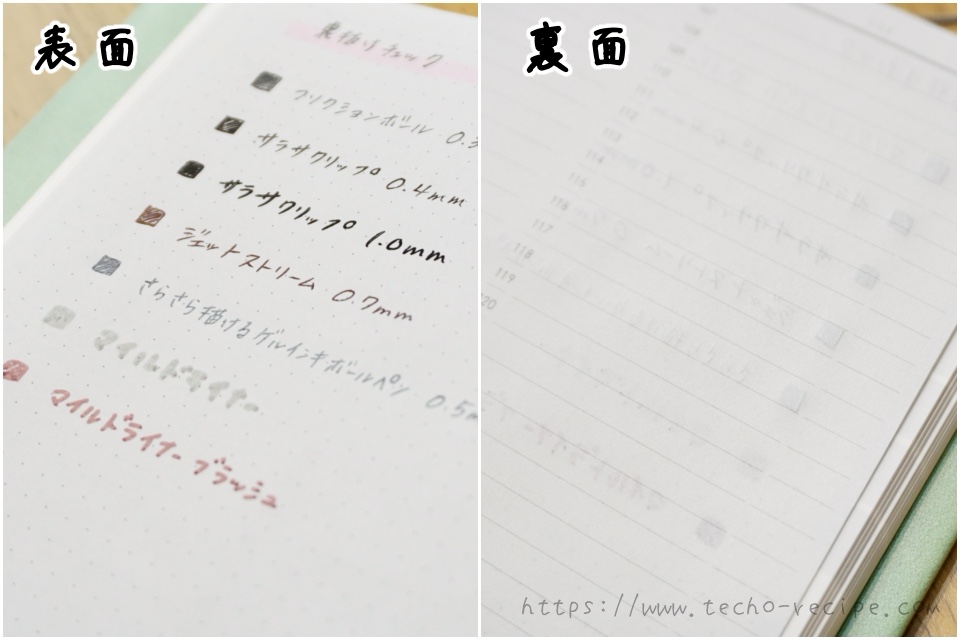 表面
裏抜けチェック
フリクションボール 0.3
サラサクリップ 0.4mm
サラサクリップ 1.0mm
ジェットストリーム 0.7mm
さらさら描けるゲルインキボールペン 0.5m
マイルドライナー
マイルドライナー ブラッシュ
裏面
111
113
114
115
116
117
118
119
120
https://www.techo-recipe.com